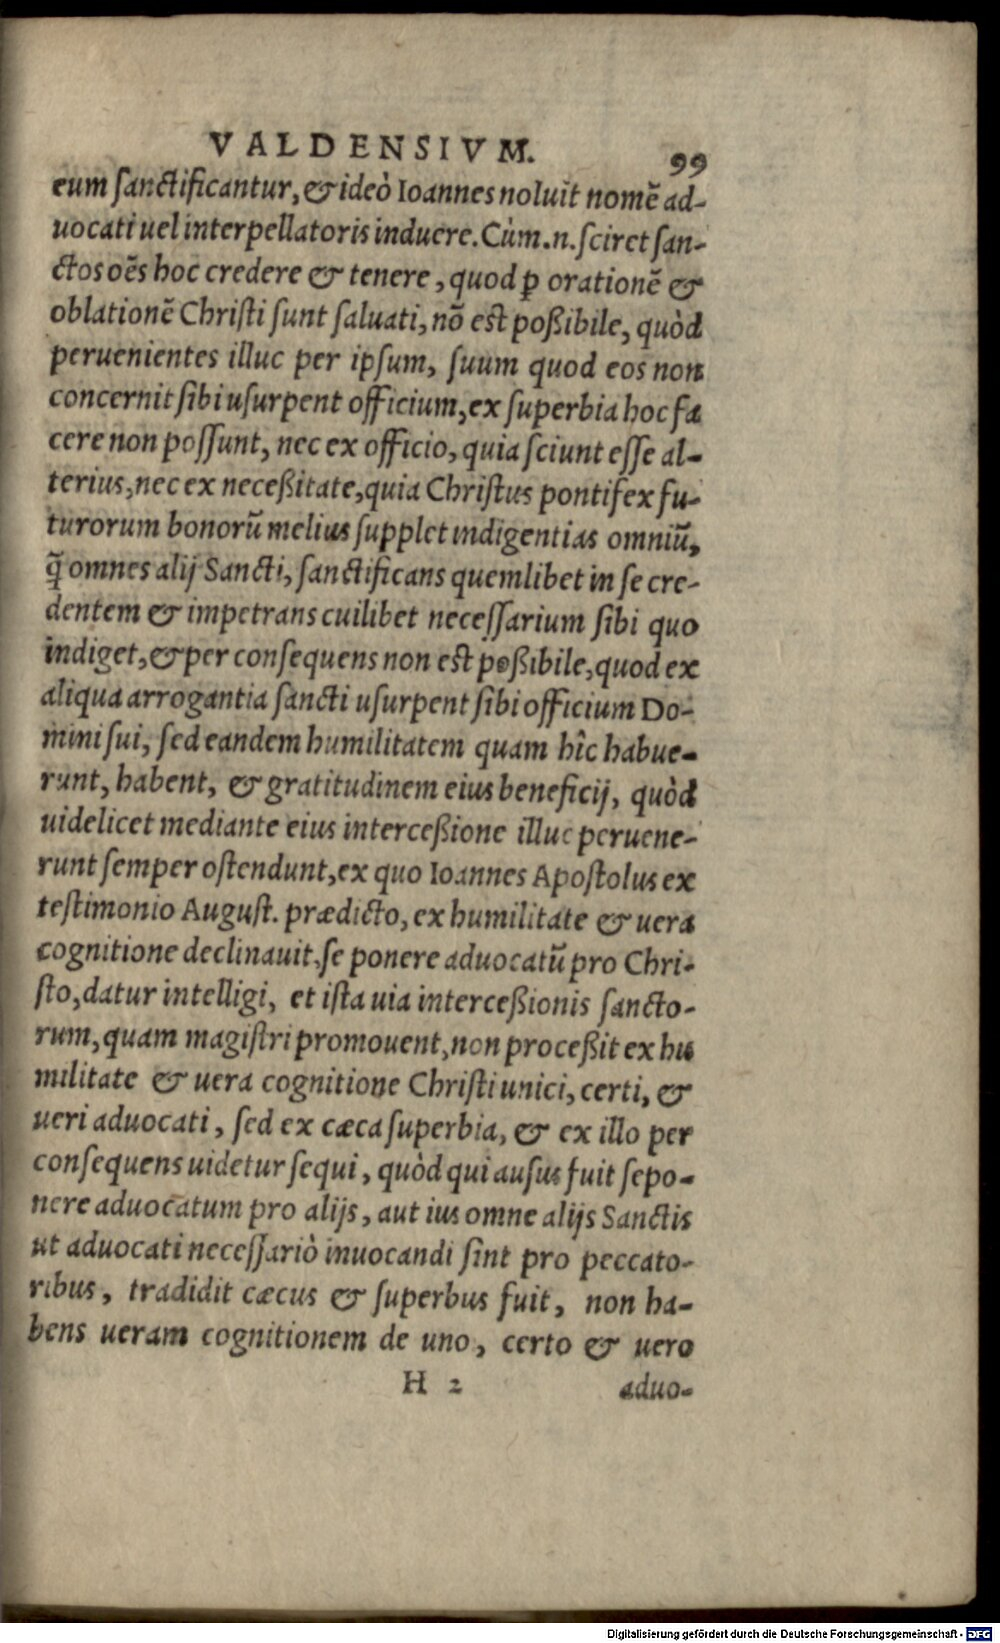 VALDENSIVM. 99
eum sanctificantur, & ideò Ioannes noluit nomē ad-
uocati uel interpellatoris induere. Cùm .n. sciret san-
ctos oēs hoc credere & tenere, quod ꝑ orationē &
oblationē Christi sunt saluati, nō est poßibile, quòd
peruenientes illuc per ipsum, suum quod eos non
concernit sibi usurpent officium, ex superbia hoc fa
cere non possunt, nec ex officio, quia sciunt esse al-
terius, nec ex neceßitate, quia Christus pontifex fu-
turorum bonorū melius supplet indigentias omniū,
q̄ omnes alij Sancti, sanctificans quemlibet in se cre-
dentem & impetrans cuilibet necessarium sibi quo
indiget, & per consequens non est poßibile, quod ex
aliqua arrogantia sancti usurpent sibi officium Do-
mini sui, sed eandem humilitatem quam hîc habue-
runt, habent, & gratitudinem eius beneficij, quòd
uidelicet mediante eius interceßione illuc peruene-
runt semper ostendunt, ex quo Ioannes Apostolus ex
testimonio August. prædicto, ex humilitate & uera
cognitione declinauit, se ponere aduocatū pro Chri-
sto, datur intelligi, et ista uia interceßionis sancto-
rum, quam magistri promouent, non proceßit ex hu
militate & uera cognitione Christi unici, certi, &
ueri aduocati, sed ex cæca superbia, & ex illo per
consequens uidetur sequi, quòd qui ausus fuit se po-
nere aduocatum pro alijs, aut ius omne alijs Sanctis
ut aduocati necessariò inuocandi sint pro peccato-
ribus, tradidit cæcus & superbus fuit, non ha-
bens ueram cognitionem de uno, certo & uero
H 2 aduo-
Digitalisierung gefördert durch die Deutsche Forschungsgemeinschaft - DFG